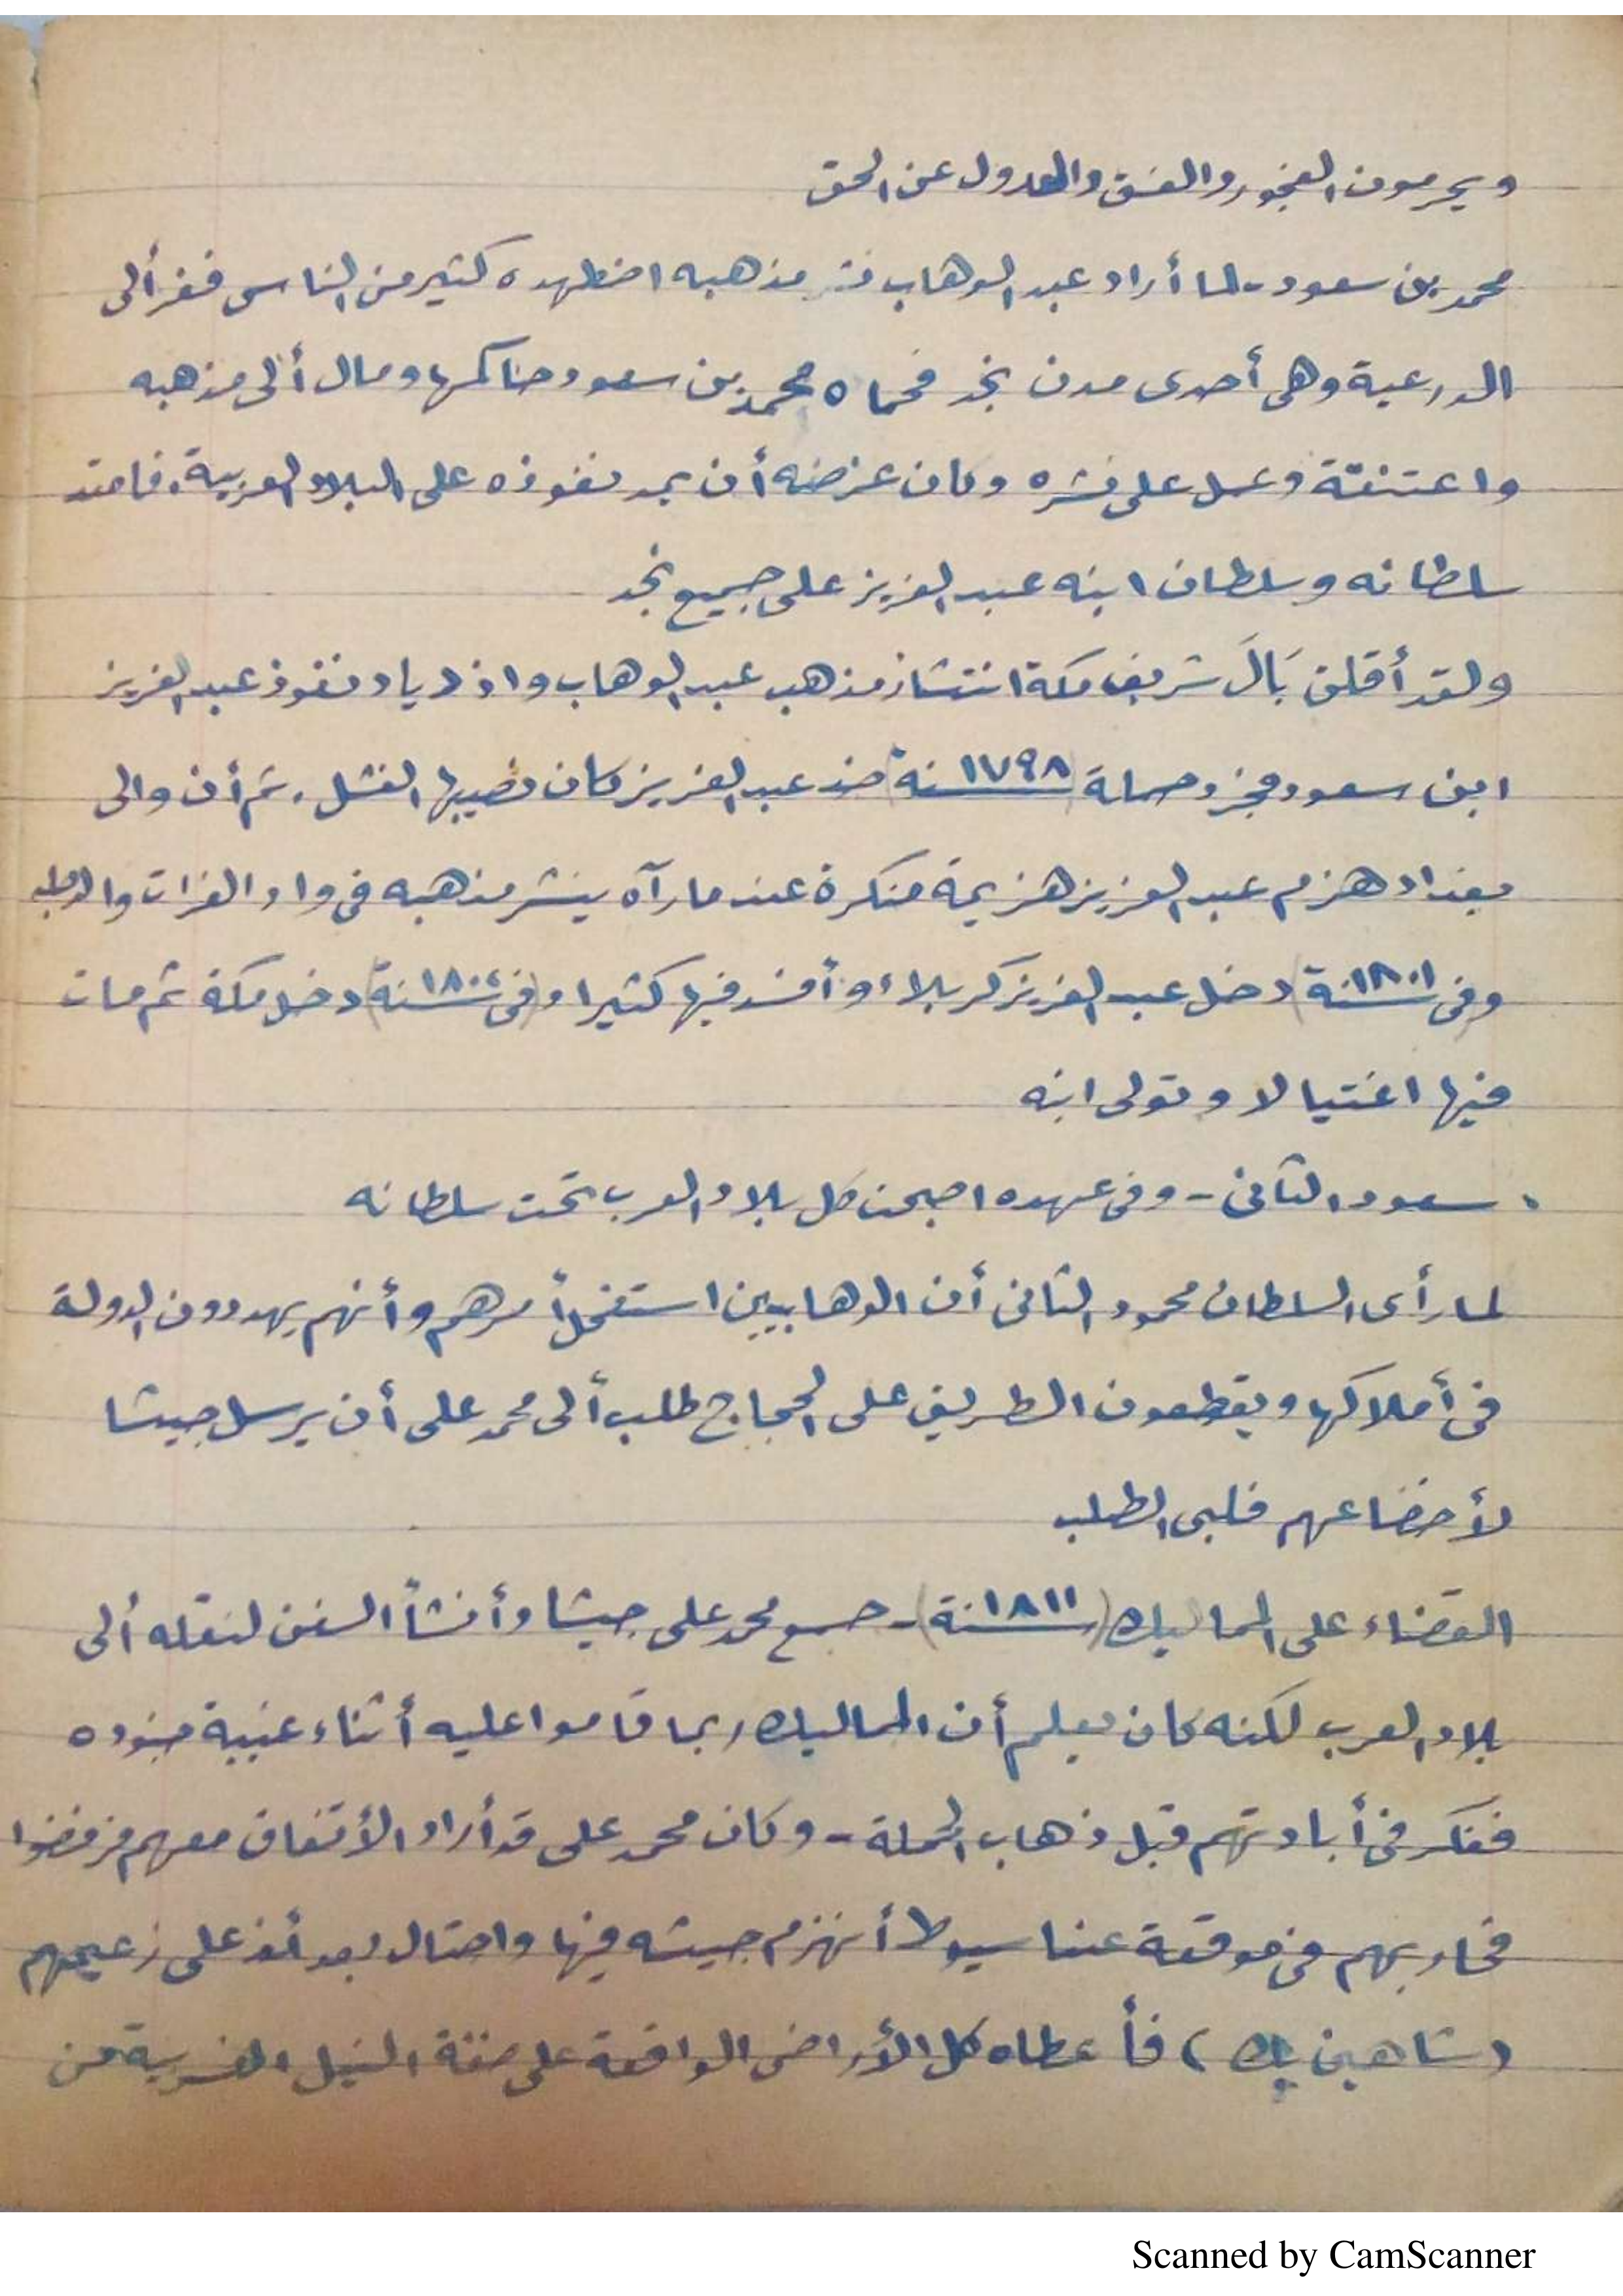 ويحرمون الفجور والفسق والعدول عن الحق
محمد بن سعود - لما أراد عبد الوهاب نشر مذهبه اضطهده كثير من الناس ففر ألى
الدرعية وهى أحدى مدن نجد فحماه محمد بن سعود حاكمها ومال ألى مذهبه
واعتنقة وعمل على نشره وكان غرضه أن يمد نفوذه على البلاد العربية، فامتد
سلطانه وسلطان ابنه عبد العزيز على جميع نجد
ولقد أقلق بَالَ شريف مكة انتشار مذهب عبد الوهاب واذدياد نفوذ عبد العزيز
ابن سعود فجرد حملة (سنة ١٧٩٨) ضد عبد العزيز فكان نصيبها الفشل، ثم أن والى
بغداد هزم عبد العزيز هزيمة منكرة عند ما رآه ينشر مذهبه فى واد الفرات والدجله
وفى (سنة ١٨٠١) دخل عبد العزيز كربلاء وأفسد فيها كثيرا و (فى سنة ١٨٠٤) دخل مكة ثم مات
فيها اغتيالا وتولى ابنه
. سعود الثانى - وفى عهده اصبحت كل بلاد العرب تحت سلطانه
لما رأى السلطان محمود الثانى أن الوهابيين استفحل أمرهم وأنهم يهددون الدولة
فى أملاكها ويقطعون الطريق على الحجاج طلب ألى محمد على أن يرسل جيشا
لأخضاعهم فلبى الطلب
القضاء على المماليك (سنة ١٨١١) - جمع محمد على جيشا وأنشأ السفن لنقله ألى
بلاد العرب لكنه كان يعلم أن المماليك ربما قاموا عليه أثناء غيبة جنوده
ففكر فى أبادتهم قبل ذهاب الحملة - وكان محمد على قد أراد الأتفاق معهم فرفضوا
فحاربهم فى موقعة عند اسيوط أنهزم جيشه فيها واحتال بعد أذ على زعيمهم
(شاهين بك) فأعطاه كل الأراضى الواقعة على ضفة النيل الغربية من
Scanned by CamScanner